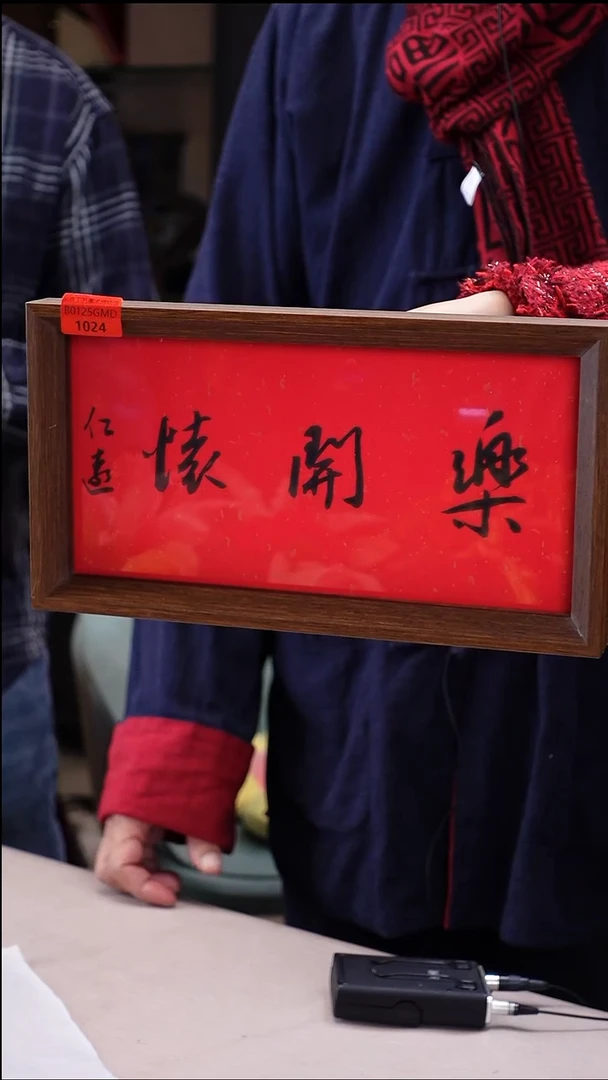 B0125GMD
1024
樂開懷
仁遠